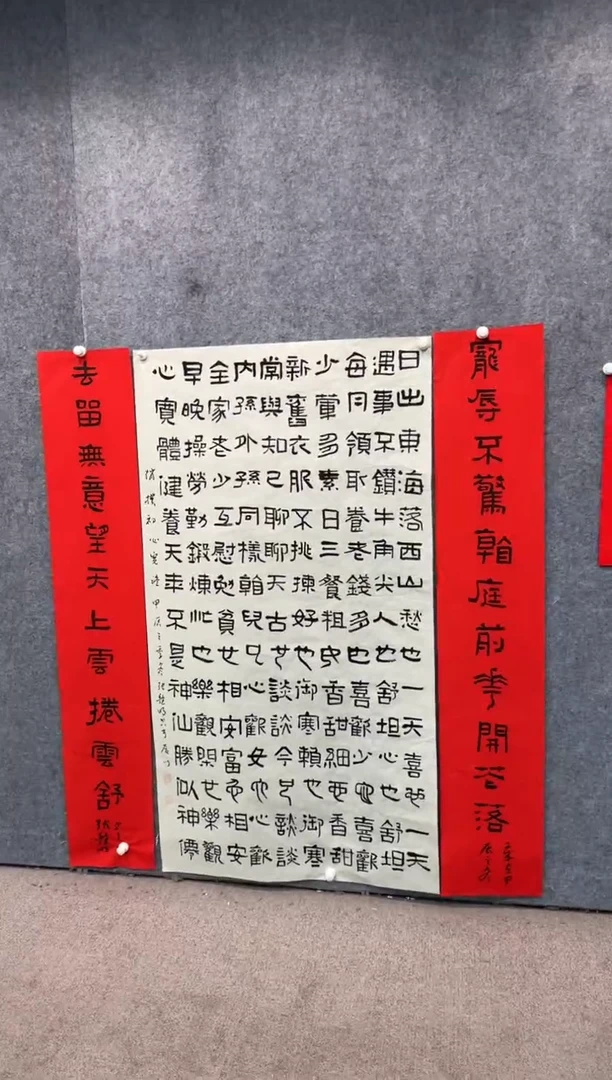 寵辱不驚看庭前華開花落
日出東海落西山愁也一天喜也一天
遇事不鑽牛角尖人也舒坦心也舒坦
每月領取養老錢多也喜歡少也喜歡
少葷多素日三餐粗也香甜細也香甜
新舊衣服不挑揀好也御寒賴也御寒
常與知己聊聊天古也談談今也談談
內孫外孫同樣看兒也心歡女也心歡
全家老少互慰勉貧也相安富也相安
早晚操勞勤鍛煉忙也樂觀閑也樂觀
心寬體健養天年不是神仙勝似神僊
樸初心寬謠甲辰之季冬
去留無意望天上雲捲雲舒